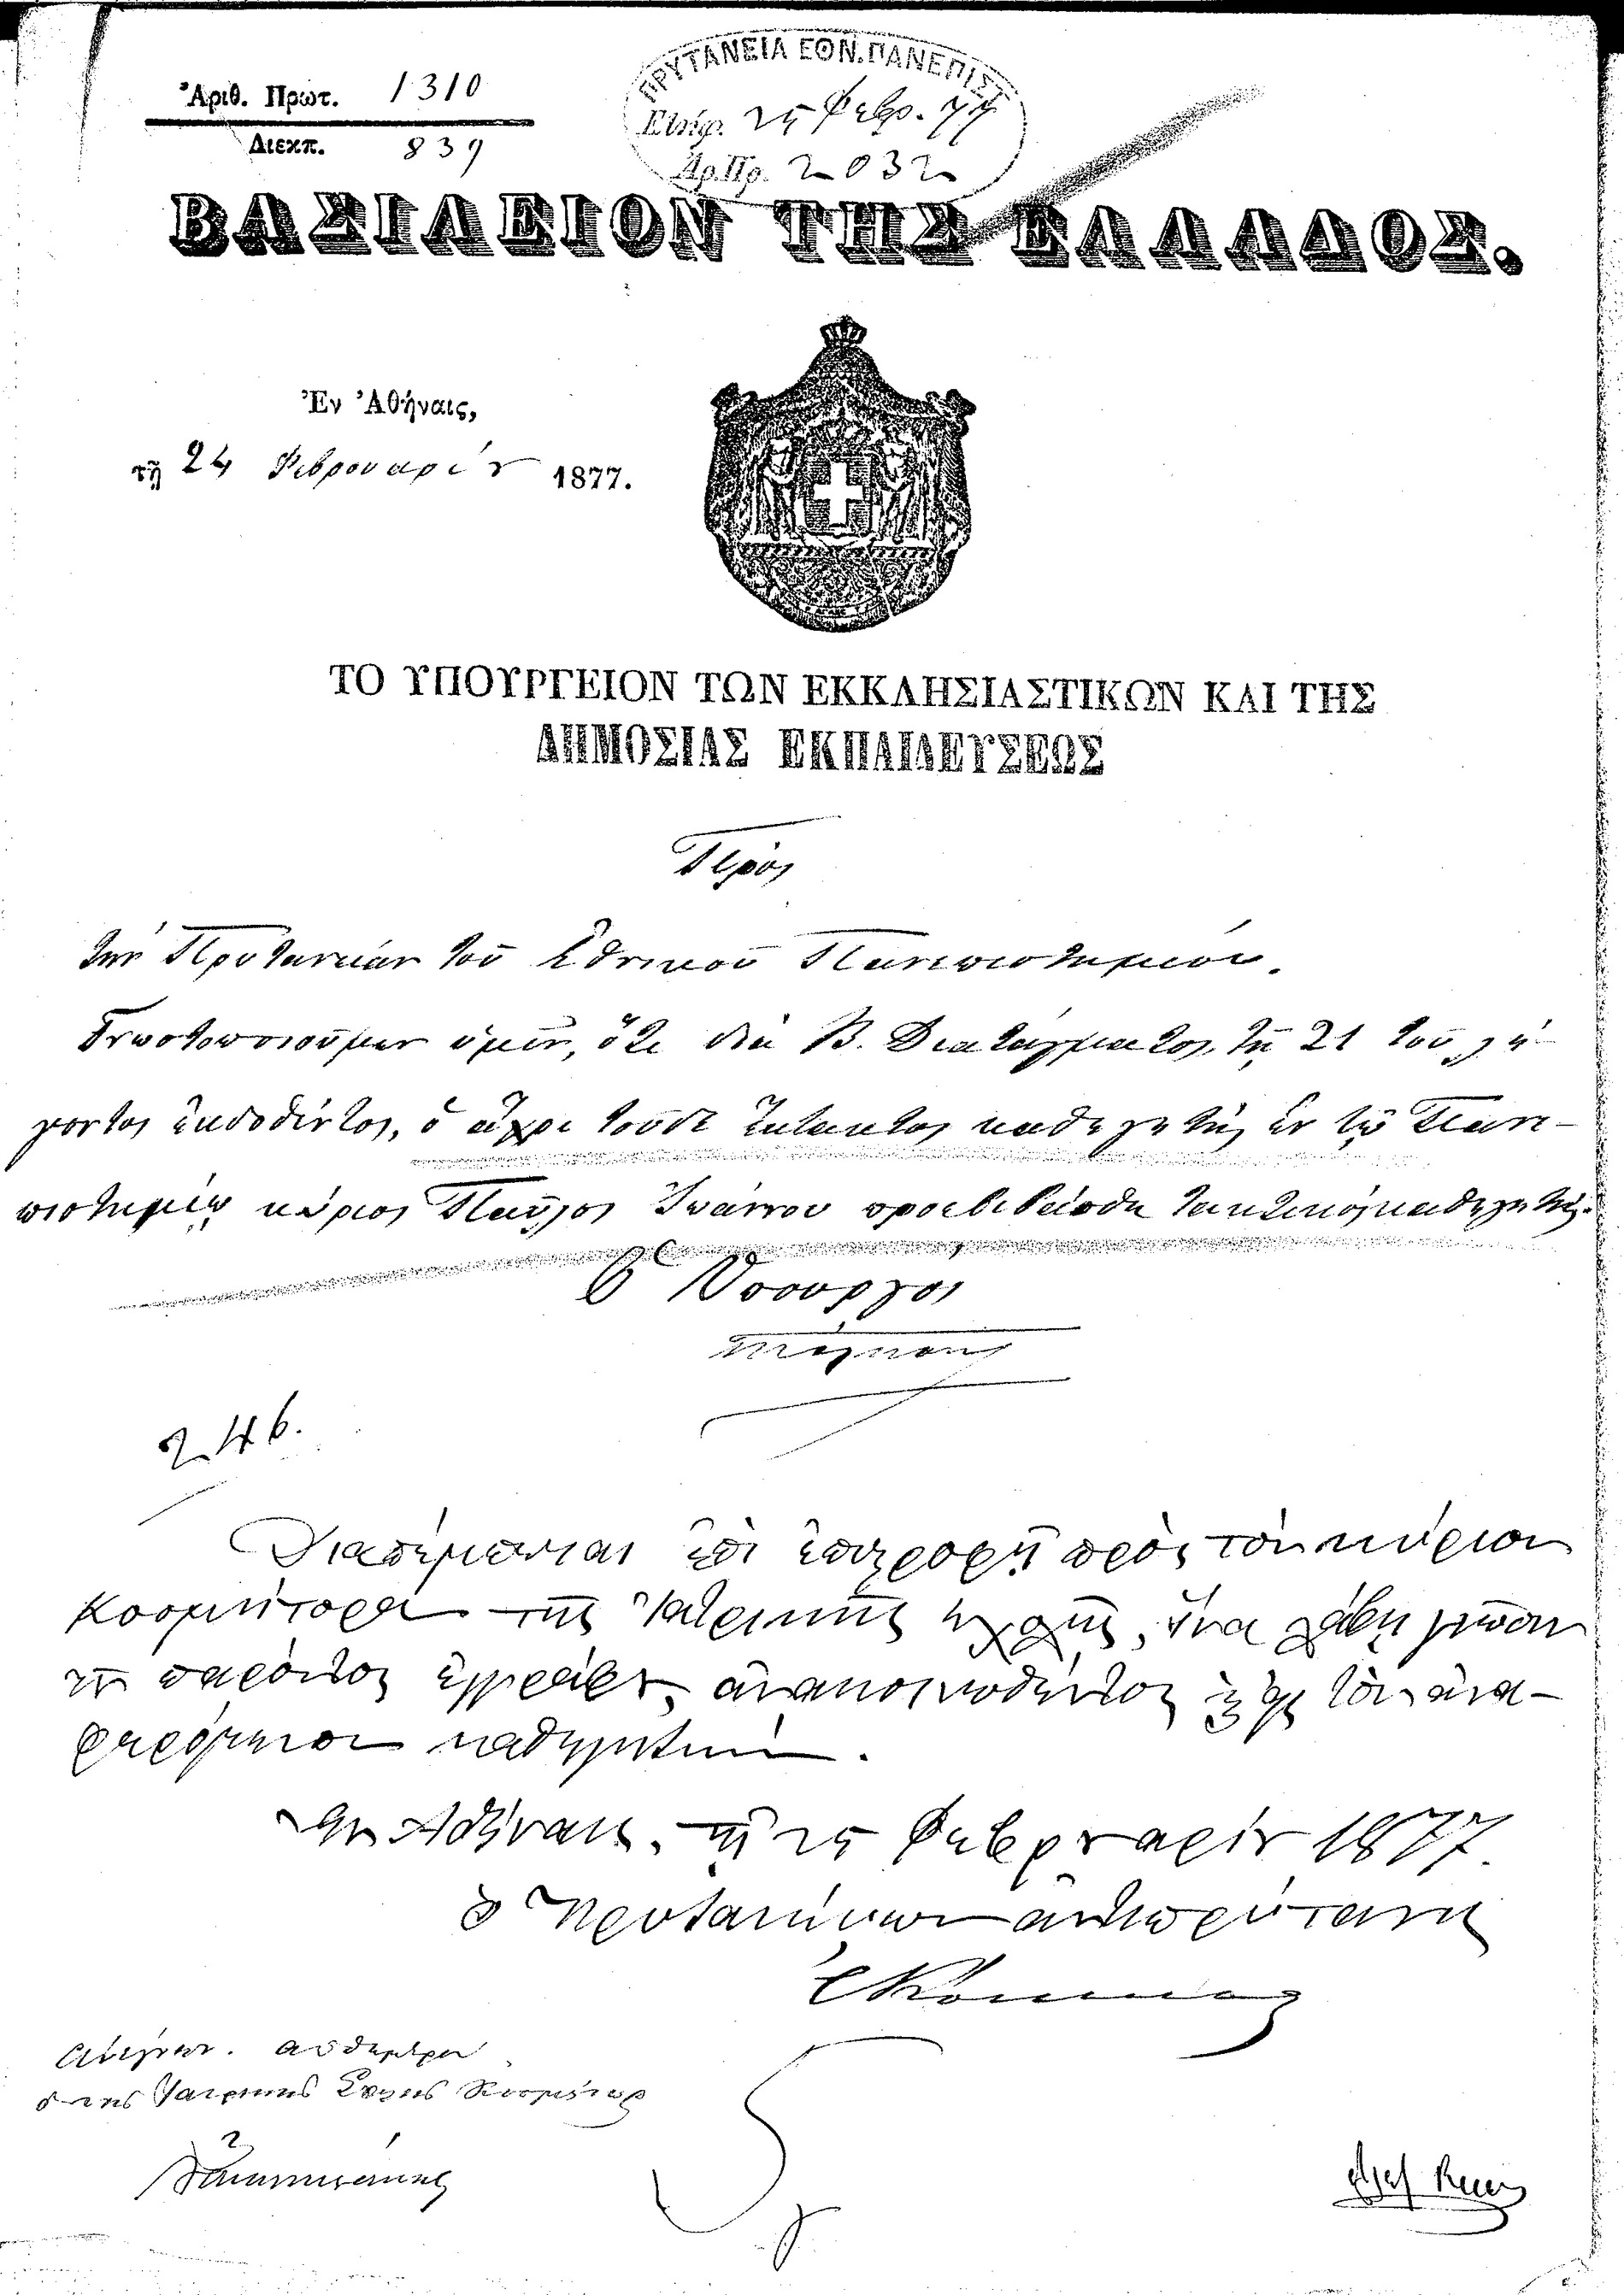 Ἀριθ. Πρωτ. 1310
Διεκπ. 839
ΠΡΥΤΑΝΕΙΑ ΕΘΝ. ΠΑΝΕΠΙΣΤ
Ἐλήφ. 25 Φεβρ. 77
Ἀρ.Πρ. 2032
ΒΑΣΙΛΕΙΟΝ ΤΗΣ ΕΛΛΑΔΟΣ.
Ἐν Ἀθήναις,
τῇ 24 Φεβρουαρίου 1877.
ΤΟ ΥΠΟΥΡΓΕΙΟΝ ΤΩΝ ΕΚΚΛΗΣΙΑΣΤΙΚΩΝ ΚΑΙ ΤΗΣ
ΔΗΜΟΣΙΑΣ ΕΚΠΑΙΔΕΥΣΕΩΣ
Πρὸς
τὴν Πρυτανείαν τοῦ Ἐθνικοῦ Πανεπιστημίου.
Γνωστοποιοῦμεν ὑμῖν, ὅτι διὰ Β. Διατάγματος, τῇ 21 τοῦ λή-
γοντος ἐκδοθέντος, ὁ ἄχρι τοῦδε ἔκτακτος καθηγητὴς ἐν τῷ Πανε-
πιστημίῳ κύριος Παῦλος Ἰωάννου προεβιβάσθη τακτικὸς καθηγητής.
Ὁ Ὑπουργὸς
246.
Διαπέμπεται ἐπὶ ἐπιστροφῇ πρὸς τὸν κύριον
Κοσμήτορα τῆς Ἰατρικῆς σχολῆς, ἵνα λάβῃ γνῶσιν
τοῦ παρόντος ἐγγράφου, ἀνακοινωθέντος καὶ πρὸς τὸν ἀνα-
φερόμενον καθηγητήν.
Ἐν Ἀθήναις, τῇ 25 Φεβρουαρίου 1877.
ὁ Πρυτανεύων ἀντιπρύτανις
Ἀνέγνων. αὐθημερὸν
ὁ τῆς Ἰατρικῆς Σχολῆς Κοσμήτωρ